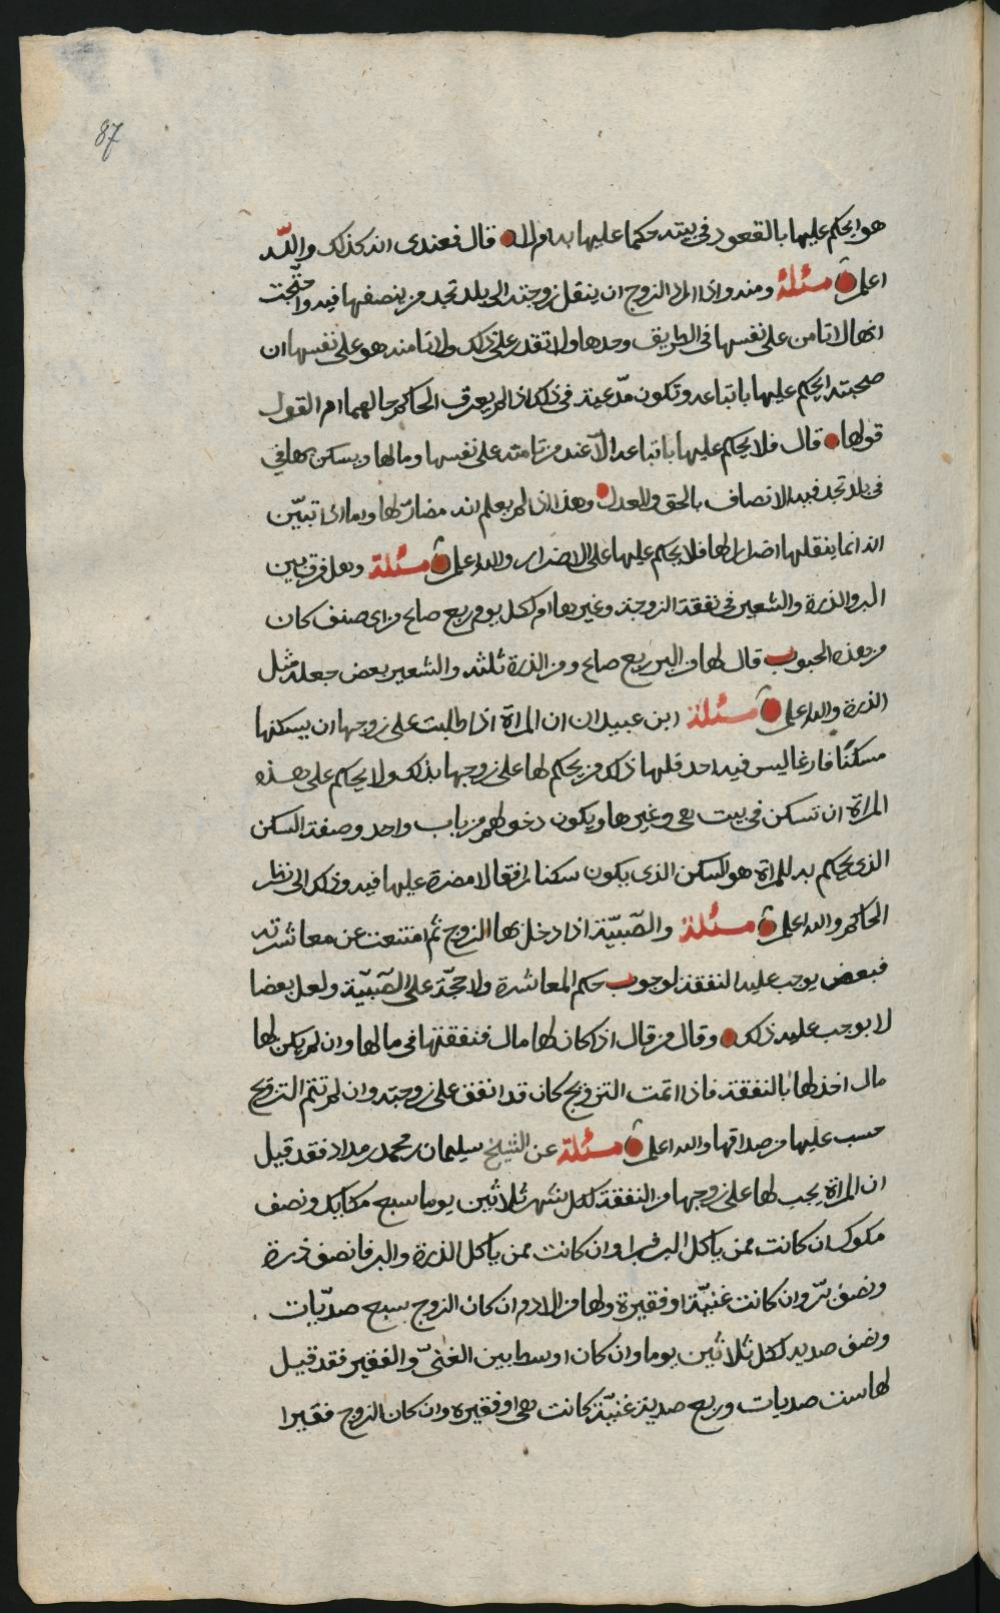 87
هو ايحكم عليها بالقعود في بيته حكما عليها به ام لا قال فعندى انه كذلك والله
اعلم مسئلة ومنه واذا اراد الزوج ان ينقل زوجته الى بلد تجد من ينصفها فيه واحتجت
انها لا تامن على نفسها في الطريق وحدها ولا تقدر على ذلك ولا تامنه هو على نفسها ان
صحبته ايحكم عليها باتباعه وتكون مدّعية في ذلك اذا لم يعرف الحاكم حالهما ام القول
قولها قال فلا يحكم عليها باتباعه الّا عند من تامنه على نفسها ومالها ويسكن بها في
في بلد تجد فيه الانصاف بالحق والعدل وهذا اذا لم يعلم انه مضارّ لها واما اذا تبيّن
انه انما ينقلها اضرارا لها فلا يحكم عليها على الاضرار والله اعلم مسئلة وهل فرق بين
البر والذرة والشعير في نفقة الزوجة وغيرها ام لكل يوم ربع صاع من اى صنف كان
من هذه الحبوب قال لها من البر ربع صاع ومن الذرة ثلثه والشعير بعض جعله مثل
الذرة والله اعلم مسئلة ابن عبيدان ان المراة اذا طلبت على زوجها ان يسكنها
مسكنًا فارغا ليس فيه احد فلها ذلك من يحكم لها على زوجها بذلك ولا يحكم على هذه
المراة ان تسكن في بيت هي وغيرها ويكون دخولهم من باب واحد وصفة السكن
الذى يحكم به للمراة هو السكن الذى يكون سكنا رافقا لا مضرة عليها فيه وذلك الى نظر
الحاكم والله اعلم مسئلة والصّبيّة اذا دخل بها الزوج ثم امتنعت عن معاشرته
فبعض يوجب عليه النفقة لوجوب حكم المعاشرة ولا حجّة على الصّبيّة ولعل بعضا
لا يوجب عليه ذلك وقال من قال اذا كان لها مال فنفقتها في مالها وان لم يكن لها
مال اخذ لها بالنفقة فاذا اتمت التزويج كان قد انفق على زوجته وان لم تتم التزويج
حسب عليها من صداقها والله اعلم مسئلة عن الشيخ سليمان بن محمد بن مداد فقد قيل
ان المراة يجب لها على زوجها من النفقة لكل شهر ثلاثين يوما سبع مكايك ونصف
مكوك ان كانت ممن ياكل البر فبرا وان كانت ممن ياكل الذرة والبر فانصف ذرة
ونصف برّ وان كانت غنيّة او فقيرة ولها من الادم ان كان الزوج سبع صديّات
ونصف صديه لكل ثلاثين يوما وان كان اوسط بين الغنيّ والفقير فقد قيل
لها ست صديات وربع صدية غنيّة كانت هي او فقيره وان كان الزوج فقيرا